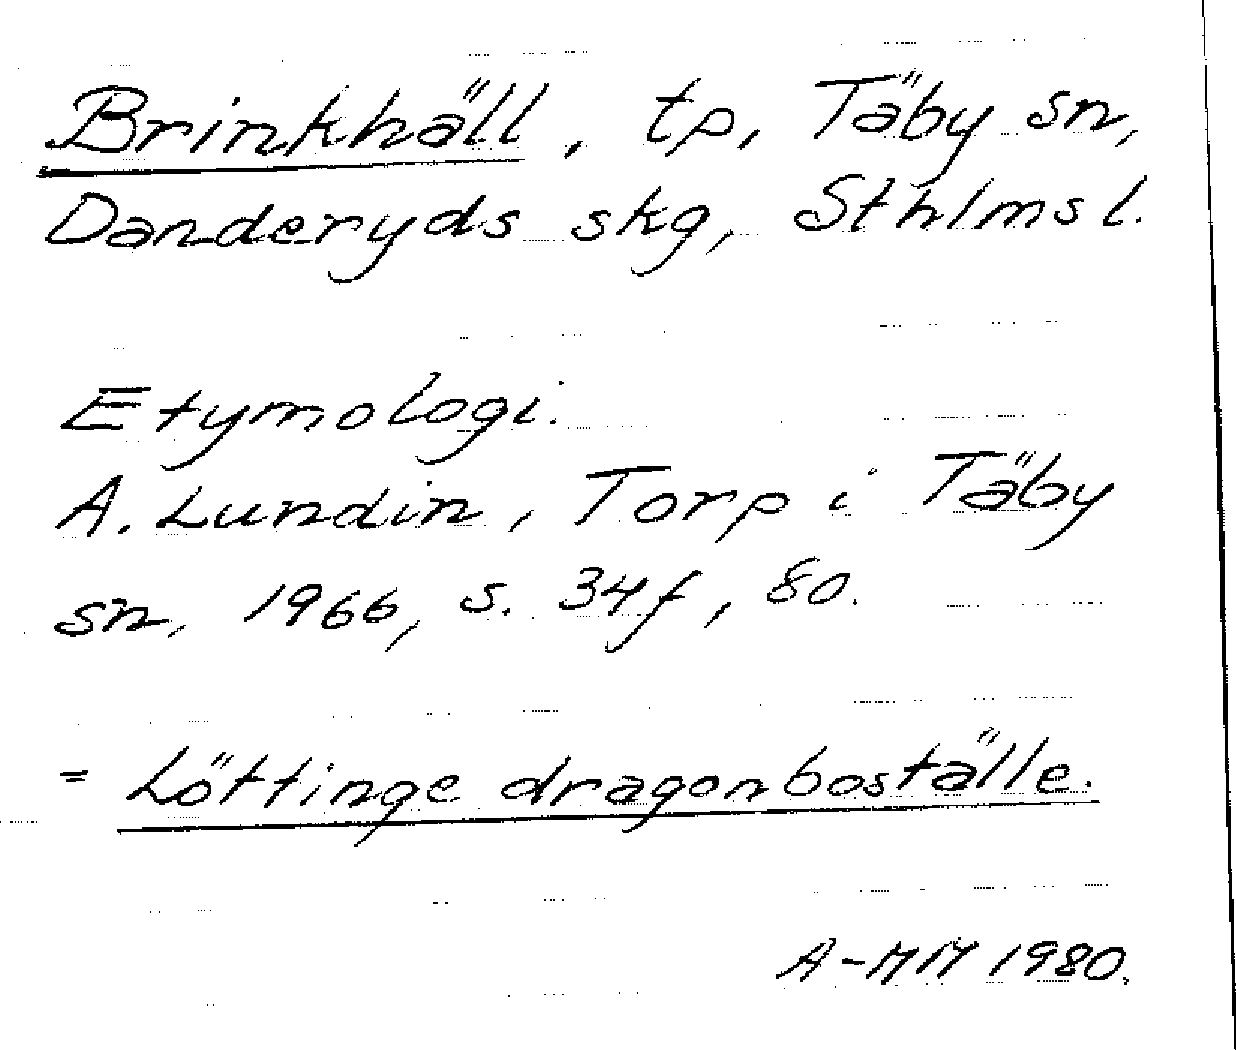 Brinkhäll, tp, Täby sn,
Danderyds skg, Sthlms l.
Etymologi.
A. Lundin, Torp i Täby
sn, 1966, s. 34f, 80.
= Löttinge dragonboställe.
A-MM 1980.